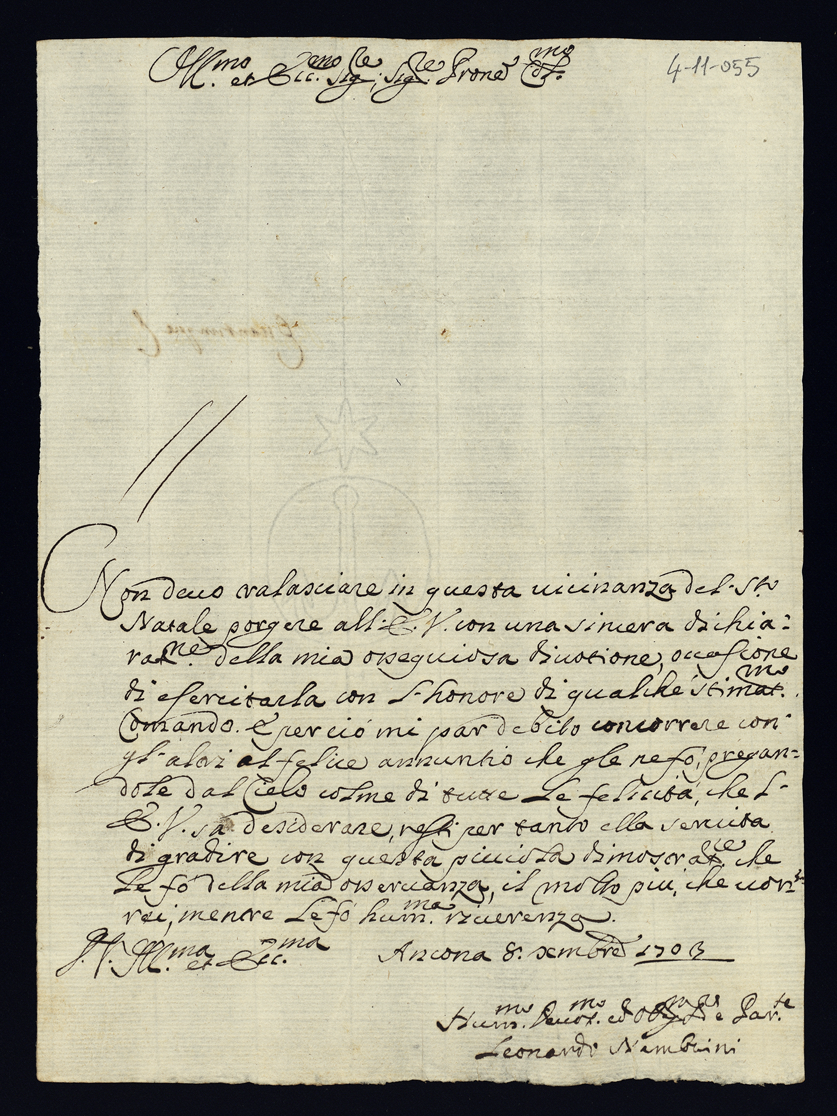 Ill.mo et Ecc.mo Sig.re, Sig.re Prone Col.mo
4-11-055
Non devo ralasciare in questa vicinanza del S.to
Natale porgere all' E. V. con una sincera dichia=
rat.ne della mia ossequiosa divotione, occasione
di esercitarla con l'honore di qualche stimat.mo
Comando. E perciò mi par debito concorrere con
gl'altri al felice annuntio che gle ne fò, pregan=
dole dal Cielo colme di tutte le felicità, che l'
E. V. sa desiderare, resti per tanto ella servita
di gradire con questa picciola dimostrat.ce che
le fò della mia osservanza, il molto più, che vor=
rei, mentre le fò hum.ma riverenza.
S. V. Ill.ma et Ecc.ma
Ancona 8. xembre 1703
Hum.mo Devot.mo ed Obl.mo Par.te
Leonardo